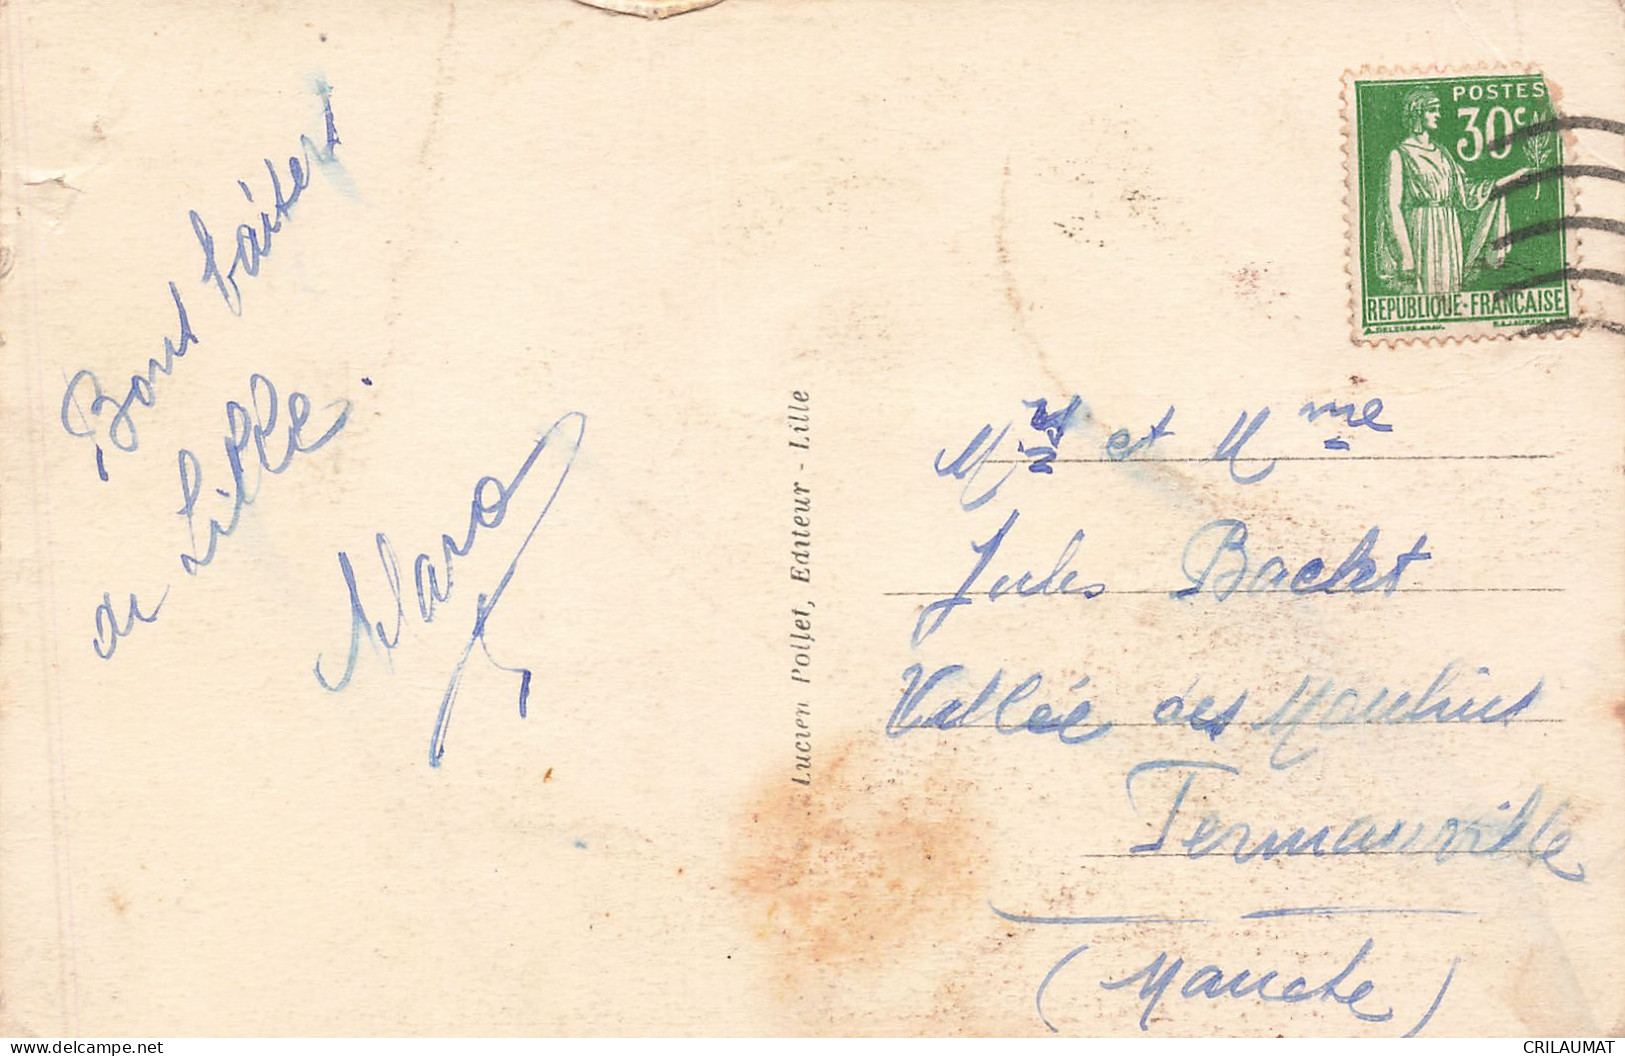 Bons baisers
de Lille.
Maro
Lucien Pollet, Editeur - Lille
POSTES
30c
REPUBLIQUE-FRANÇAISE
Mr et Mme
Jules Backt
Vallée des Moulins
Fermanville
(Manche)
CRILAUMAT
www.delcampe.net